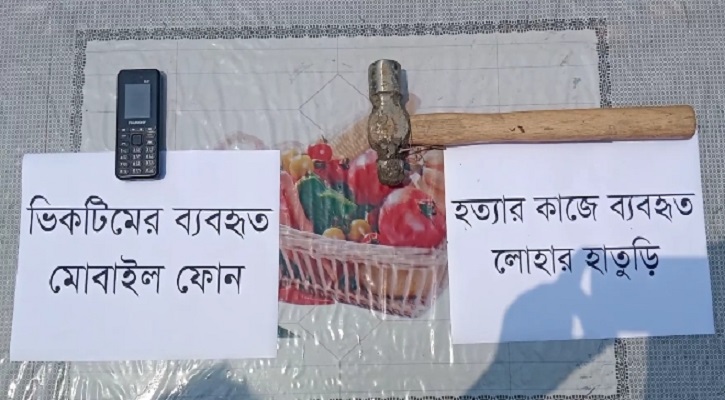 ভিকটিমের ব্যবহৃত
মোবাইল ফোন
হত্যার কাজে ব্যবহৃত
লোহার হাতুড়ি